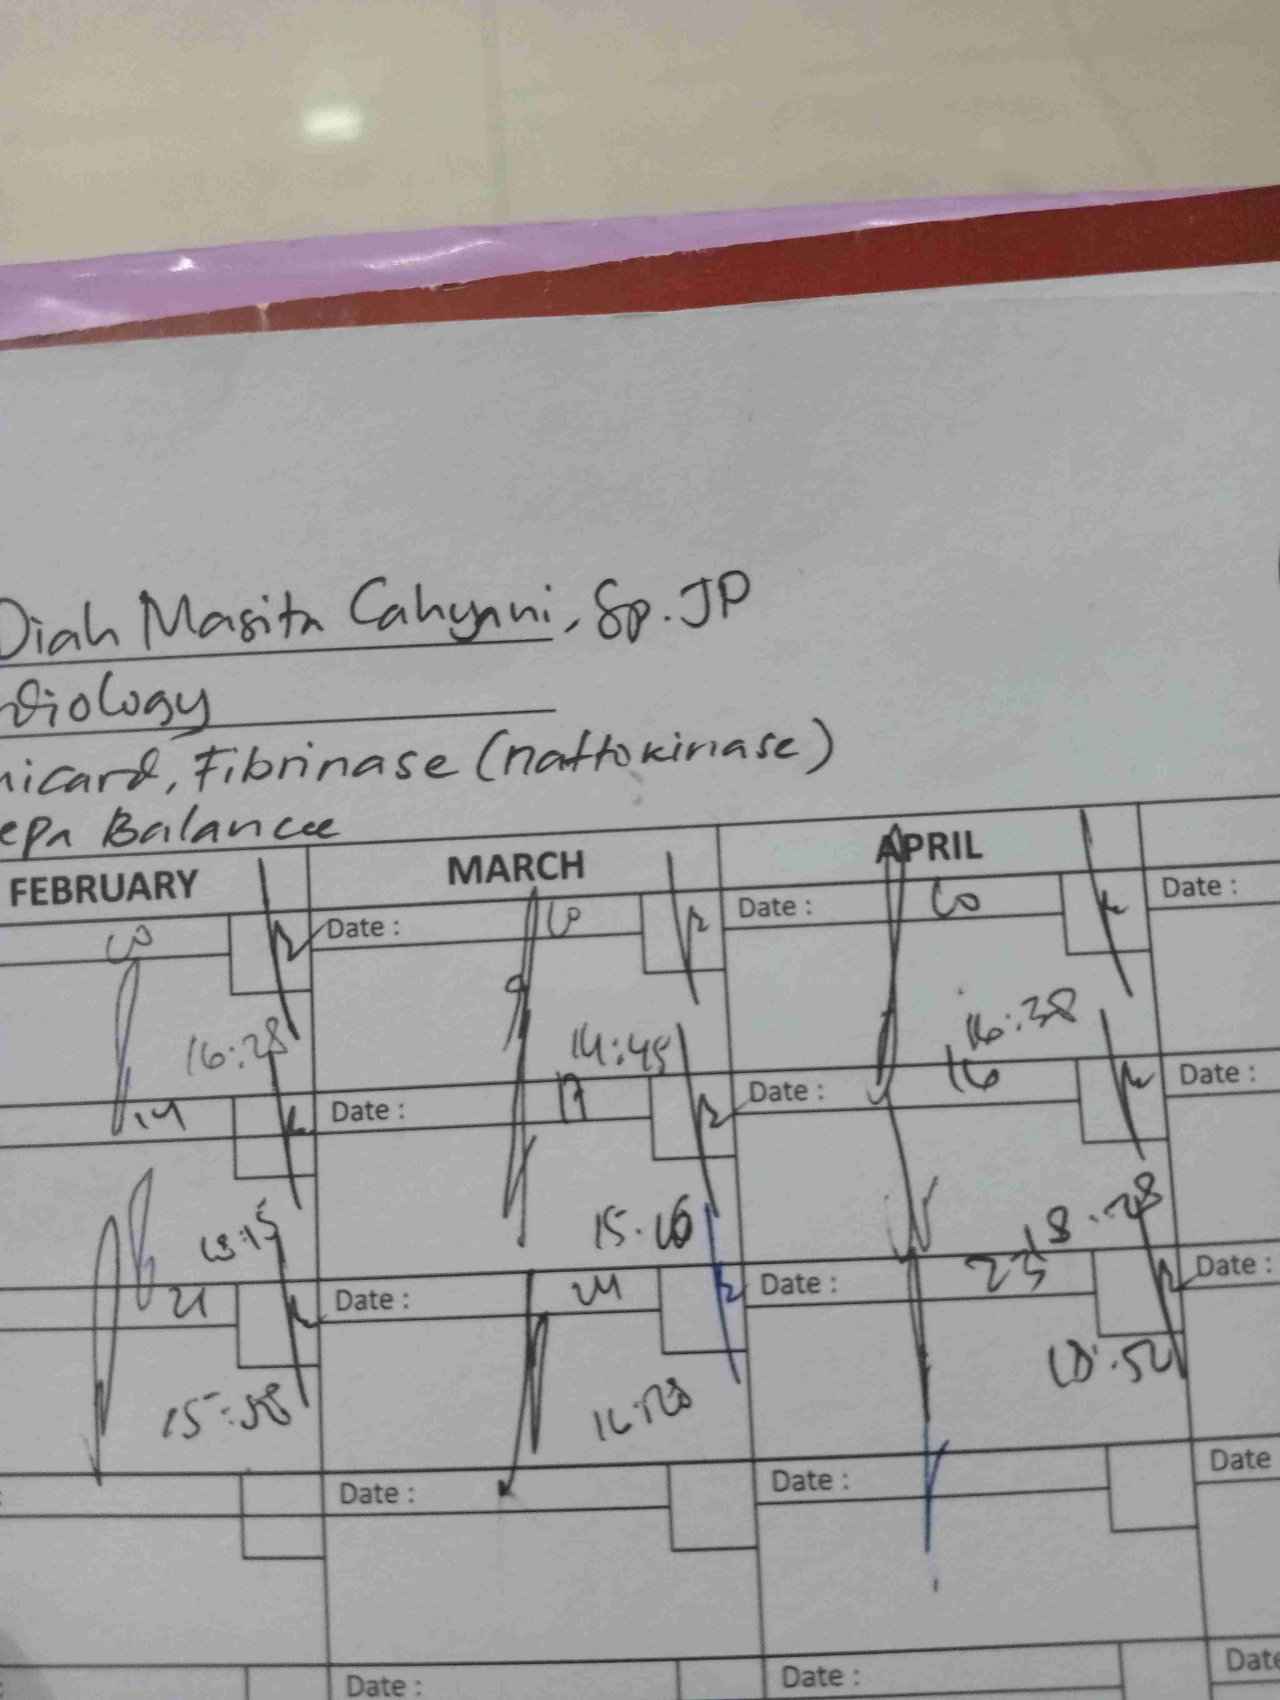 Diah Masita Cahyani, Sp.JP
diology
nicard, Fibrinase (nattokinase)
epa Balance
FEBRUARY MARCH APRIL
Date : Date : 
Date :
16:28 14:45 16:38
14 Date : 17 Date : 16 Date :
18:15 15.16 18.28
21 Date : 24 Date : 23 Date :
15:58 18.52
Date : Date : Date
Date : Date : Date